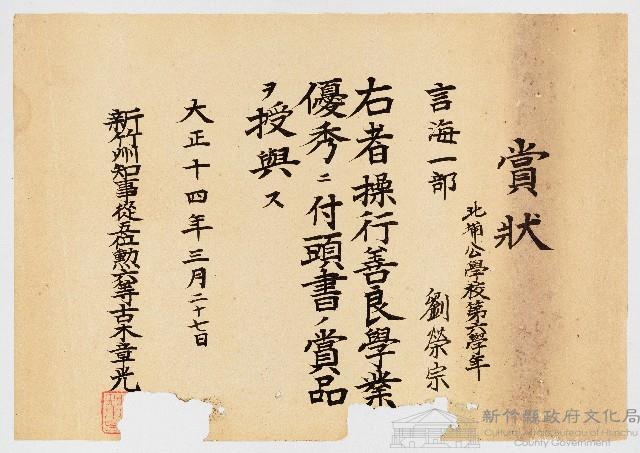 賞狀
北埔公學校第六學年
劉榮宗
言海一部
右者操行善良學業
優秀ニ付頭書ノ賞品
ヲ授與ス
大正十四年三月二十七日
新竹州知事從五位勳六等古木章光
新竹縣政府文化局
Cultural Affairs Bureau of Hsinchu
County Government